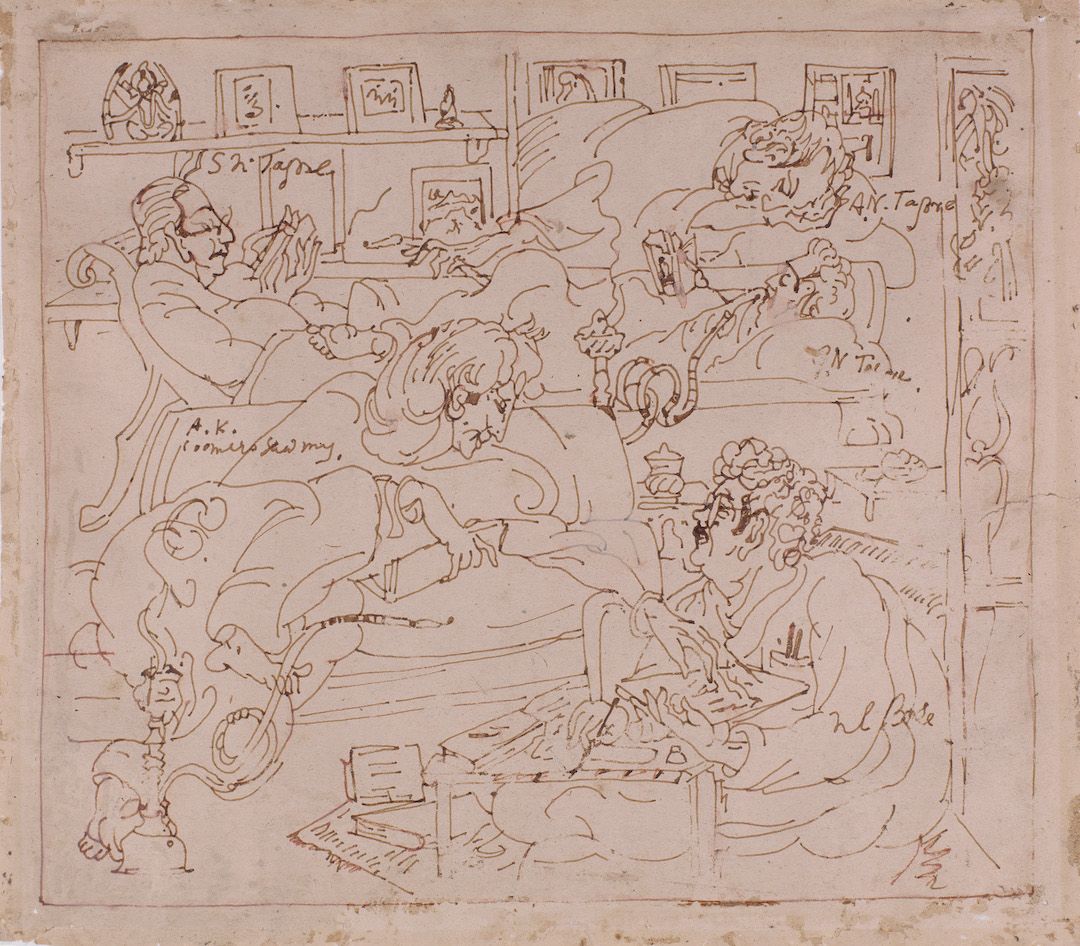 S N. Tagore
A.N. Tagore
G.N Tagore.
A.K.
Coomeraswamy.
n l Bose